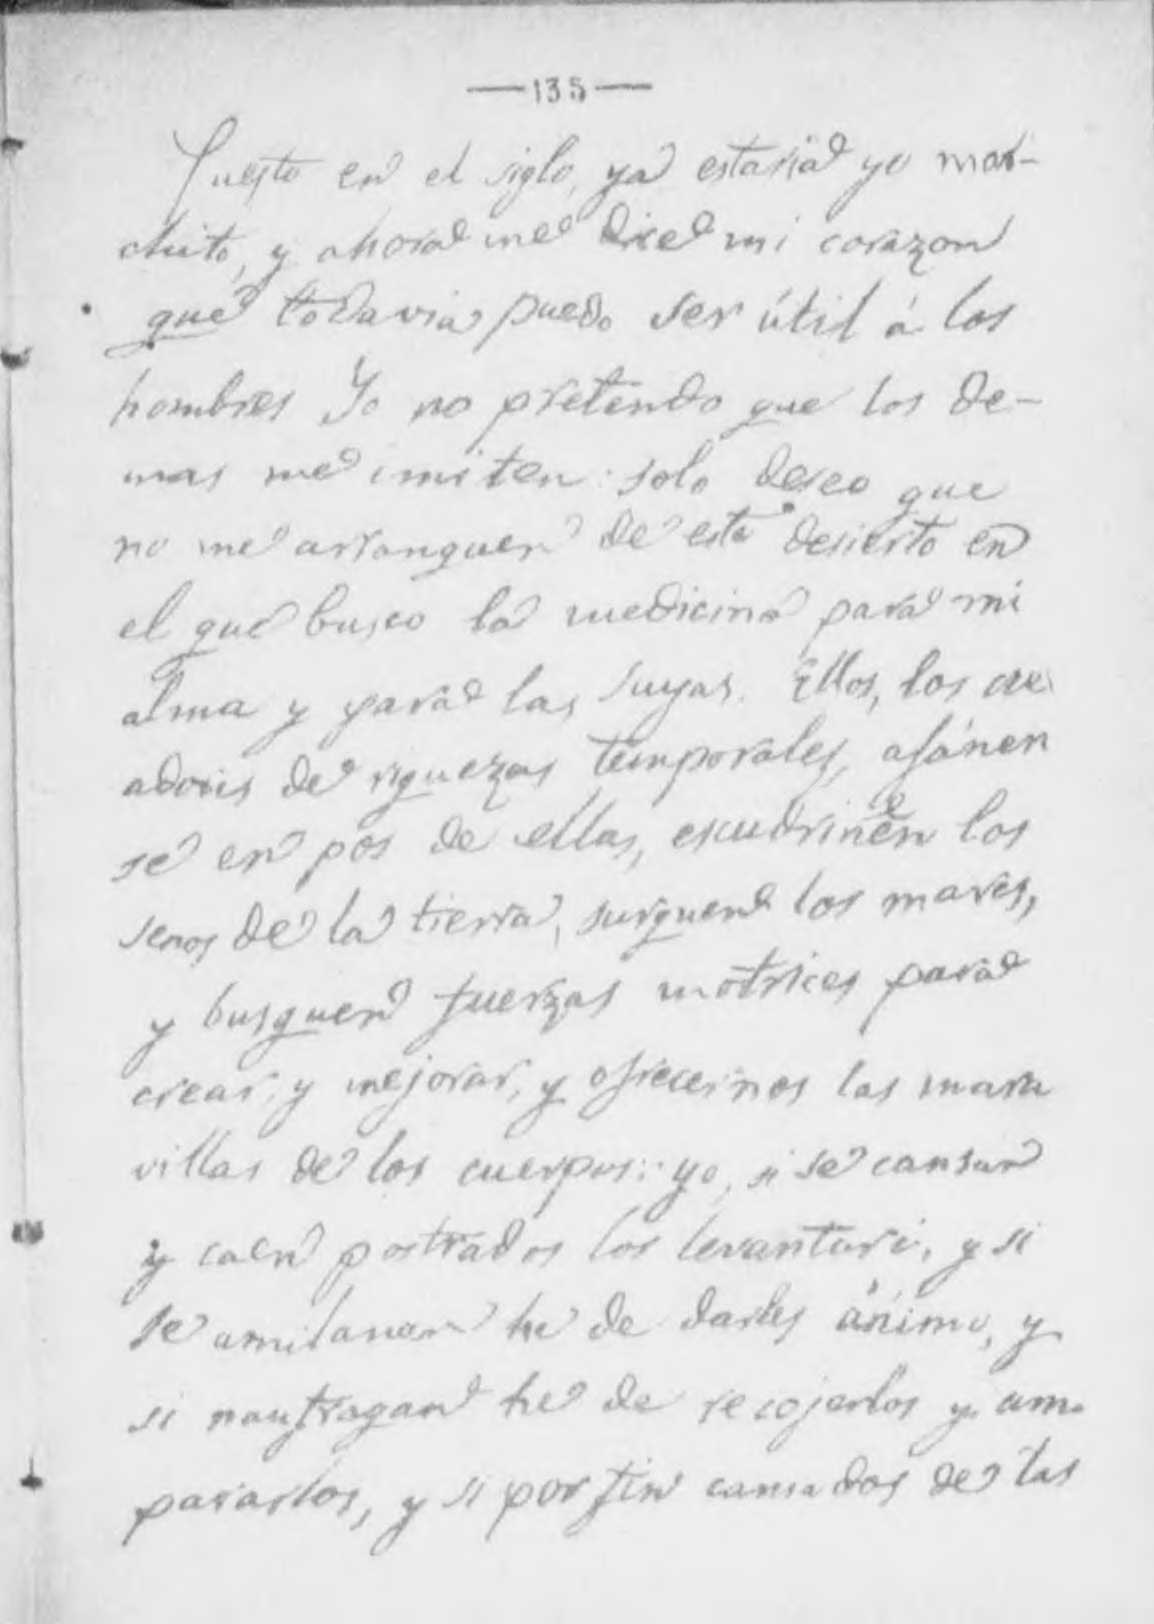 —135—
Puesto en el siglo, ya estaria yo mar-
chito, y ahora me dice mi corazon
que todavia puedo ser útil á los
hombres Yo no pretendo que los de-
mas me imiten: solo deseo que
no me arranquen de este desierto en
el que busco la medicina para mi
alma y para las suyas. Ellos, los cre
adores de riquezas temporales, afánen
se en pos de ellas, escudriñen los
senos de la tierra, surquen los mares,
y busquen fuerzas motrices para
crear, y mejorar, y ofrecernos las mara
villas de los cuerpos: yo, si se cansan
y caen postrados los levantaré, y si
se amilanan he de darles ánimo, y
si naufragan he de recojerlos y am-
pararlos, y si por fin cansados de las